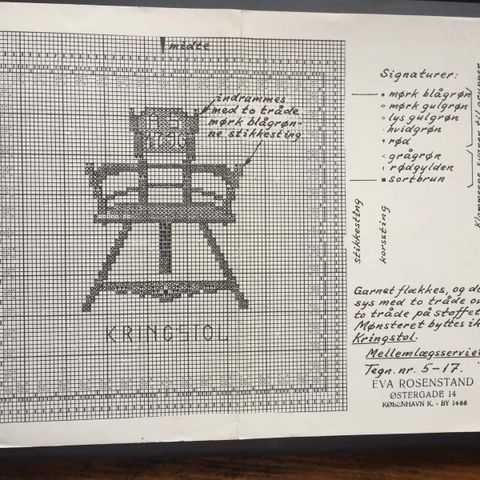 midte
indrammes
med to tråde
mørk blågrøn-
ne stikkesting
KRINGSTOL
Signaturer:
mørk blågrøn
mørk gulgrøn
lys gulgrøn
hvidgrøn
rød
grågrøn
rødgylden
sortbrun
stikkesting
korssting
Garnet flækkes, og de
sys med to tråde ov
to tråde på stoffet
Mønsteret byttes ik
Kringstol.
Mellemlægsserviet
Tegn. nr. 5-17.
EVA ROSENSTAND
ØSTERGADE 14
KØBENHAVN K. - BY 1466